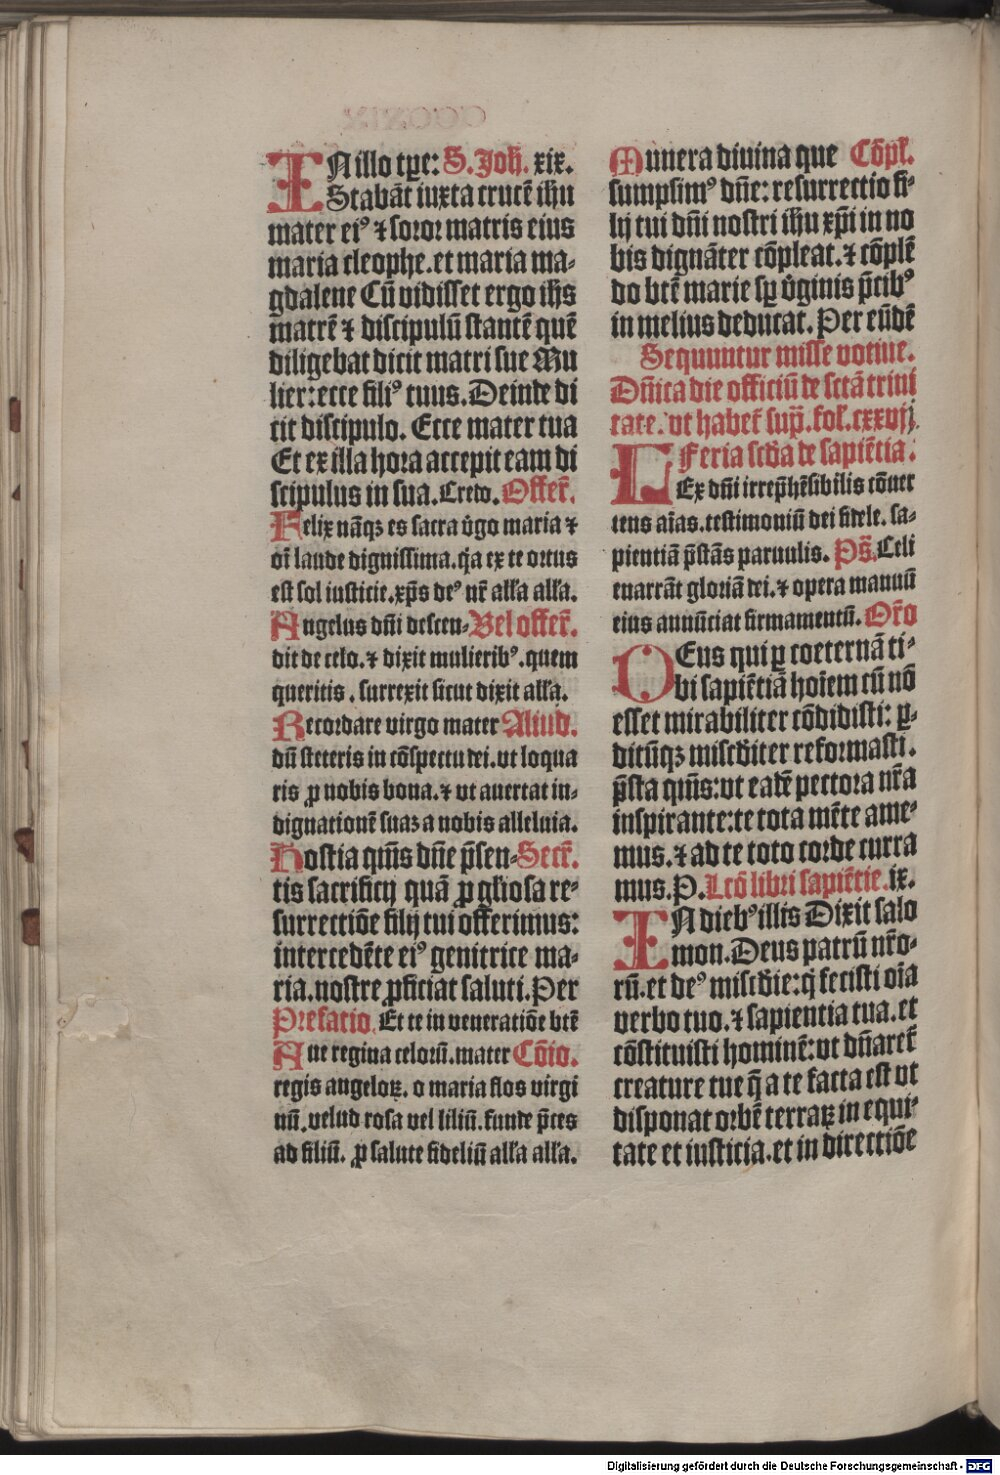 IN illo tꝑe: S. Joh̄. xix.
Stabāt iuxta crucē ihu
mater eiꝰ ⁊ soror matris eius
maria cleophe. et maria ma-
gdalene Cū vidisset ergo ihs
matrē ⁊ discipulū stantē quē
diligebat dicit matri sue Mu
lier: ecce filiꝰ tuus. Deinde di
cit discipulo. Ecce mater tua
Et ex illa hora accepit eam di
scipulus in sua. Credo. Offer̄.
Felix nāqꝫ es sacra v̄go maria ⁊
oī laude dignissima. q̄a ex te ortus
est sol iusticie. xp̄s deꝰ nr̄ all'a all'a.
Angelus dn̄i descen- Vel offer̄.
dit de celo. ⁊ dixit mulieribꝰ. quem
queritis. surrexit sicut dixit all'a.
Recordare virgo mater Aliud.
dū steteris in cōspectu dei. vt loqua
ris ꝓ nobis bona. ⁊ vt auertat in-
dignationē suaꝫ a nobis alleluia.
Hostia qm̄s dn̄e p̄sen- Secr̄.
tis sacrificij quā ꝓ gl'iosa re-
surrectiōe filij tui offerimus:
intercedēte eiꝰ genitrice ma-
ria. nostre ꝓficiat saluti. Per
Prefatio. Et te in veneratiōe btē
Aue regina celorū. mater Cōio.
regis angeloꝝ. o maria flos virgi
nū. velud rosa vel liliū. funde p̄ces
ad filiū. ꝓ salute fideliū all'a all'a.
Munera diuina que Cōpl'.
sumpsimꝰ dn̄e: resurrectio fi-
lij tui dn̄i nostri ihu xp̄i in no
bis dignāter cōpleat. ⁊ cōplē
do btē marie sꝑ v̄ginis p̄cibꝰ
in melius deducat. Per eūdē
Sequuntur misse votiue.
Dn̄ica die officiū de sctā trini
tate. vt habet᷑ sup̄. fol'. cxxvij.
Feria scd'a de sapiētia.
LEx dn̄i irrep̄hēsibilis cōuer
tens aīas. testimoniū dei fidele. sa-
pientiā p̄stās paruulis. Ps̄. Celi
enarrāt gloriā dei. ⁊ opera manuū
eius annūciat firmamentū. Or̄o
DEus qui ꝑ coeternā ti-
bi sapiētiā hoīem cū nō
esset mirabiliter cōdidisti: ꝑ-
ditūqꝫ misc'diter reformasti.
p̄sta qm̄s: vt eadē pectora nr̄a
inspirante: te tota mēte ame-
mus. ⁊ ad te toto corde curra
mus. P. Lcō libri sapiētie. ix.
IN diebꝰ illis Dixit salo
mon. Deus patrū nr̄o-
rū. et deꝰ misc'die: q̄ fecisti oīa
verbo tuo. ⁊ sapientia tua. et
cōstituisti hominē: vt dn̄aret᷑
creature tue q̄ a te facta est vt
disponat orbē terraꝝ in equi-
tate et iusticia. et in directiōe
Digitalisierung gefördert durch die Deutsche Forschungsgemeinschaft - DFG